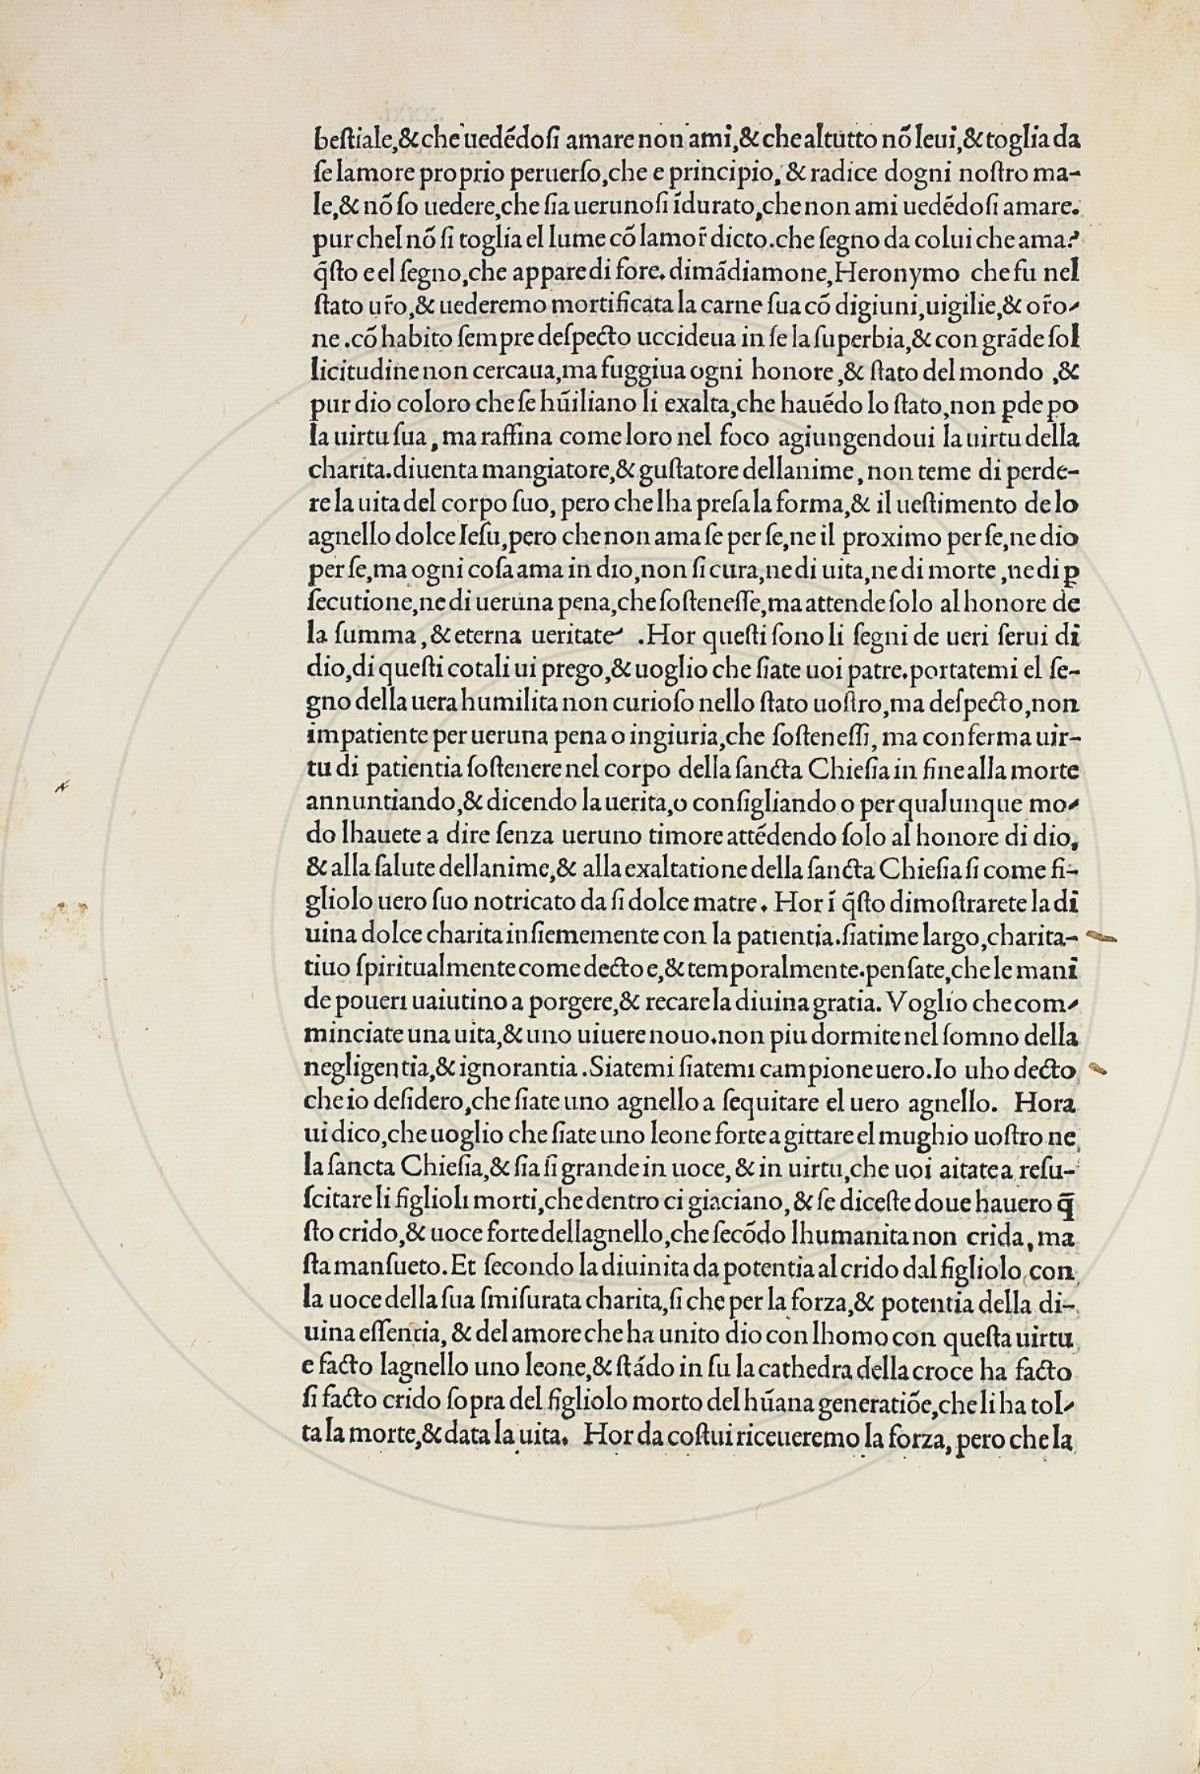 beſtiale,&che uedēdoſi amare non ami,&che altutto nō leui,&toglia da
ſe lamore proprio peruerſo,che e principio,& radice dogni noſtro ma-
le,& nō ſo uedere,che ſia uerunoſi īdurato,che non ami uedēdoſi amare.
pur chel nō ſi toglia el lume cō lamor̄ dicto.che ſegno da colui che ama?
q̄ſto e el ſegno,che appare di fore.dimādiamone,Heronymo che fu nel
ſtato ur̄o,& uederemo mortificata la carne ſua cō digiuni,uigilie,& or̄o-
ne.cō habito ſempre deſpecto uccideua in ſe la ſuperbia,& con grāde ſol
licitudine non cercaua,ma fuggiua ogni honore,& ſtato del mondo ,&
pur dio coloro che ſe hūiliano li exalta,che hauēdo lo ſtato,non ꝑde ꝑo
la uirtu ſua, ma raffina come loro nel foco agiungendoui la uirtu della
charita.diuenta mangiatore,& guſtatore dellanime, non teme di perde-
re la uita del corpo ſuo, pero che lha preſa la forma,& il ueſtimento de lo
agnello dolce Ieſu,pero che non ama ſe per ſe,ne il proximo per ſe,ne dio
per ſe,ma ogni coſa ama in dio,non ſi cura,ne di uita,ne di morte ,ne di ꝑ
ſecutione,ne di ueruna pena,che ſoſteneſſe,ma attende ſolo al honore de
la ſumma, & eterna ueritate .Hor queſti ſono li ſegni de ueri ſerui di
dio,di queſti cotali ui prego,& uoglio che ſiate uoi patre.portatemi el ſe-
gno della uera humilita non curioſo nello ſtato uoſtro,ma deſpecto,non
impatiente per ueruna pena o ingiuria,che ſoſteneſſi, ma con ferma uir-
tu di patientia ſoſtenere nel corpo della ſancta Chieſia in fine alla morte
annuntiando,& dicendo la uerita,o conſigliando o per qualunque mo-
do lhauete a dire ſenza ueruno timore attēdendo ſolo al honore di dio,
& alla ſalute dellanime,& alla exaltatione della ſancta Chieſia ſi come fi-
gliolo uero ſuo notricato da ſi dolce matre. Hor ī q̄ſto dimoſtrarete la di
uina dolce charita inſiememente con la patientia.ſiatime largo,charita-
tiuo ſpiritualmente come decto e,& temporalmente.penſate,che le mani
de poueri uaiutino a porgere,& recare la diuina gratia. Voglio che com-
minciate una uita,& uno uiuere nouo.non piu dormite nel ſomno della
negligentia,& ignorantia.Siatemi ſiatemi campione uero.Io uho decto
che io deſidero,che ſiate uno agnello a ſequitare el uero agnello. Hora
ui dico,che uoglio che ſiate uno leone forte a gittare el mughio uoſtro ne
la ſancta Chieſia,& ſia ſi grande in uoce, & in uirtu,che uoi aitate a reſu-
ſcitare li figlioli morti,che dentro ci giaciano, & ſe diceſte doue hauero q̄
ſto crido,& uoce forte dellagnello,che ſecōdo lhumanita non crida, ma
ſta manſueto.Et ſecondo la diuinita da potentia al crido dal figliolo con
la uoce della ſua ſmiſurata charita,ſi che per la forza,& potentia della di-
uina eſſentia, & del amore che ha unito dio con lhomo con queſta uirtu
e facto lagnello uno leone,& ſtādo in ſu la cathedra della croce ha facto
ſi facto crido ſopra del figliolo morto del hūana generatiōe,che li ha tol-
ta la morte,& data la uita. Hor da coſtui riceueremo la forza, pero che la